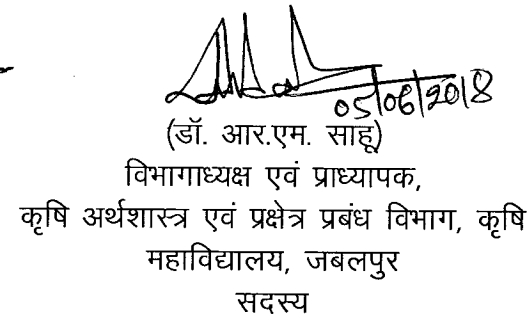 05/06/2018
(डॉ. आर.एम. साहू)
विभागाध्यक्ष एवं प्राध्यापक,
कृषि अर्थशास्त्र एवं प्रक्षेत्र प्रबंध विभाग, कृषि
महाविद्यालय, जबलपुर
सदस्य